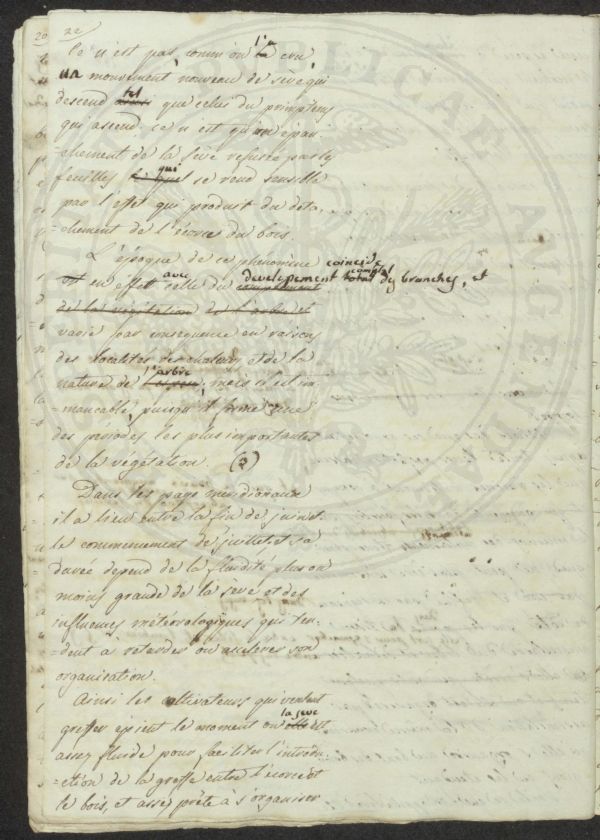 20 22
Ce n'est pas, comm' on l'a cru,
un mouvement nouveau de sève qui
descend tel que celui du printems
qui ascend. ce n'est qu'un épan
=chement de la sève refusée par les
feuilles qui se rend sensible
par l'effet qui produit du déta,
=chement de l'écorce du bois.
L'époque de ce phenomène coincide
en effet avec celle du developement complet total des branches, et
de la végétation de l'arbre et
varie par consequence en raison
des localités des chaleurs, et de la
nature de l'arbre; mais il est im
=mancable, puisqu'il forme une
des périodes les plus importantes
de la végétation. (3)
Dans les pays meridionaux
il a lieu entre la fin de juin et
le commencement de juillet, et sa
durée depend de la fluidité plus ou
moins grande de la seve et des
influences météorologiques qui ten.
=dent à retarder ou accelerer son
organisation.
Ainsi les cultivateurs qui veulent
greffer épient le moment ou la seve est
assez fluide pour faciliter l'introdu
=ction de la greffe entre l'écorce et
le bois, et assez prête à s'organiser